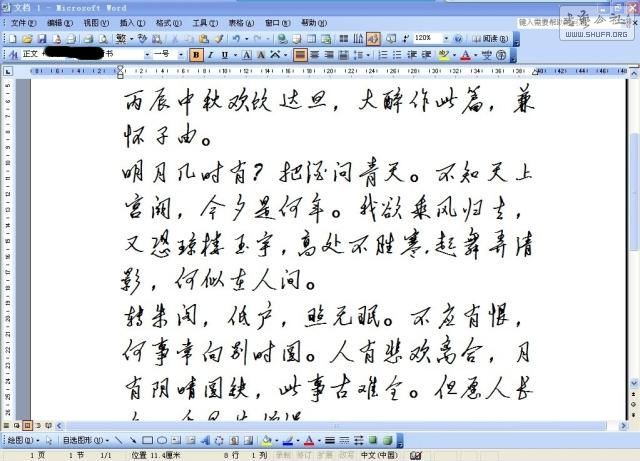 文档 1 - Microsoft Word
文件(F) 编辑(E) 视图(V) 插入(I) 格式(O) 工具(T) 表格(A) 窗口(W) 帮助(H)
120% 阅读(R)
WWW.SHUFA.ORG
正文 一号
丙辰中秋欢饮达旦，大醉作此篇，兼
怀子由。
明月几时有？把酒问青天。不知天上
宫阙，今夕是何年。我欲乘风归去，
又恐琼楼玉宇，高处不胜寒，起舞弄清
影，何似在人间。
转朱阁，低户，照无眠。不应有恨，
何事常向别时圆。人有悲欢离合，月
有阴晴圆缺，此事古难全。但愿人长
绘图(D) 自选图形(U)
1 页 1 节 1/1 位置 11.4厘米 8 行 1 列 录制 修订 扩展 改写 中文(中国)